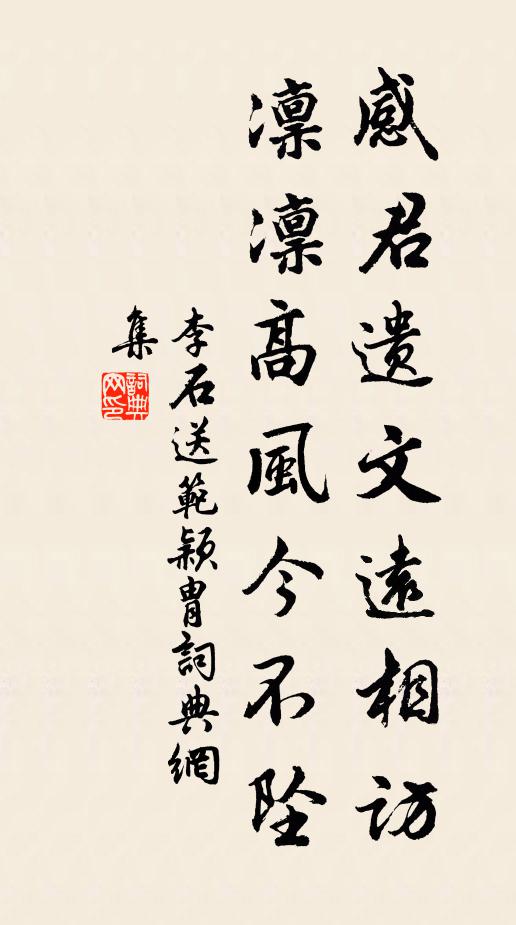 感君遺文遠相訪
凜凜高風今不坠
李石送範穎胄詞典網
集
詞典
网印